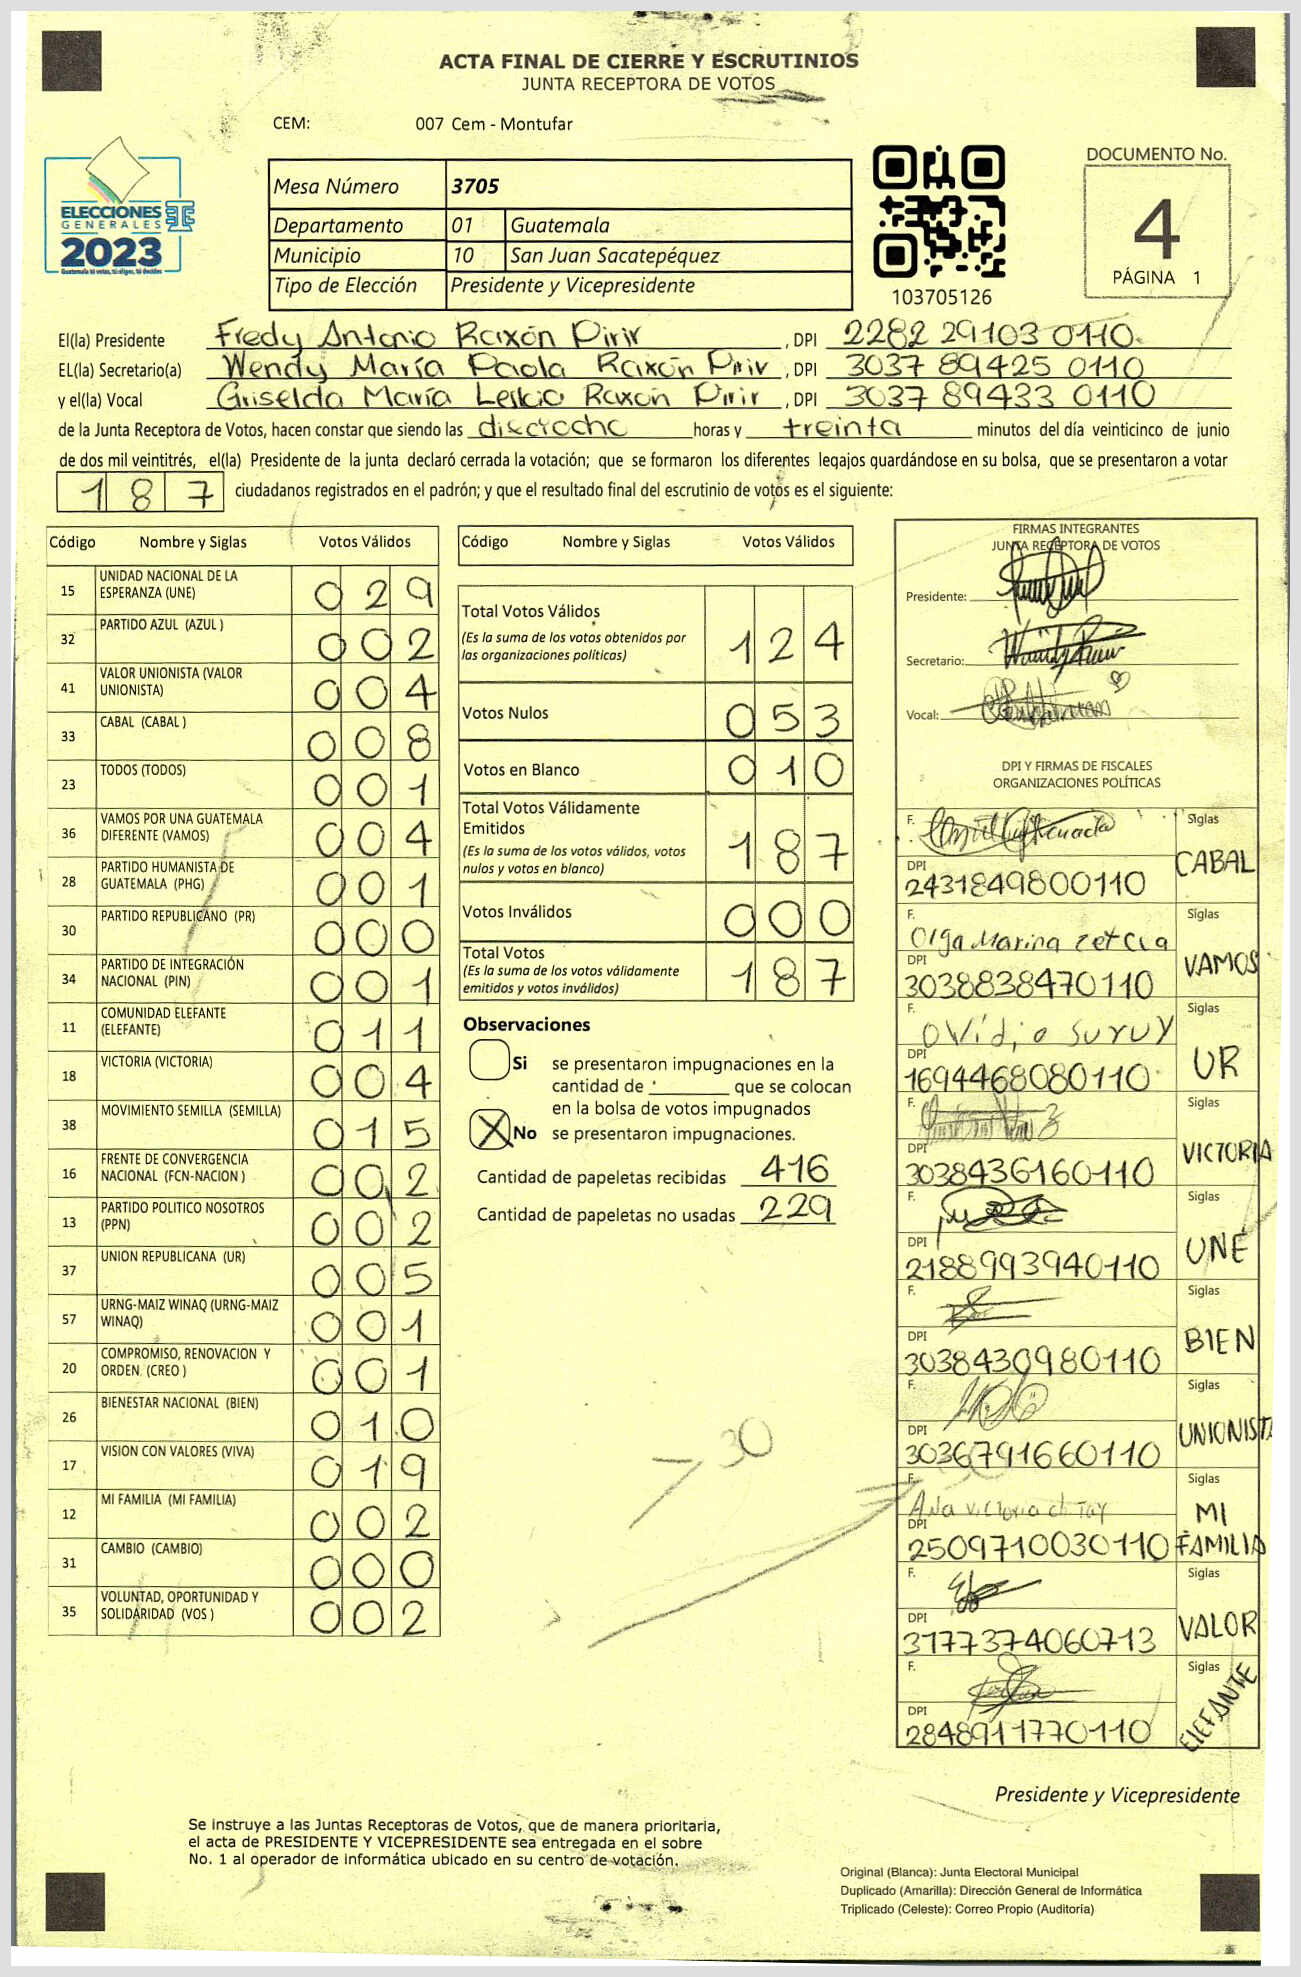 ACTA FINAL DE CIERRE Y ESCRUTINIOS
JUNTA RECEPTORA DE VOTOS
CEM: 007 Cem - Montufar
ELECCIONES
GENERALES
2023
Guatemala tú votas, tú eliges, tú decides
Mesa Número 3705
Departamento 01 Guatemala
Municipio 10 San Juan Sacatepéquez
Tipo de Elección Presidente y Vicepresidente
103705126
DOCUMENTO No.
4
PÁGINA 1
El(la) Presidente Fredy Antonio Raxón Pirir, DPI 2282 29103 0110
EL(la) Secretario(a) Wendy María Paola Raxón Pirir, DPI 3037 89425 0110
y el(la) Vocal Griselda María Raxón Pirir, DPI 3037 89433 0110
de la Junta Receptora de Votos, hacen constar que siendo las dieciocho horas y treinta minutos del día veinticinco de junio
de dos mil veintitrés, el(la) Presidente de la junta declaró cerrada la votación; que se formaron los diferentes legajos guardándose en su bolsa, que se presentaron a votar
187 ciudadanos registrados en el padrón; y que el resultado final del escrutinio de votos es el siguiente:
Código Nombre y Siglas Votos Válidos
15 UNIDAD NACIONAL DE LA ESPERANZA (UNE) 029
32 PARTIDO AZUL (AZUL ) 002
41 VALOR UNIONISTA (VALOR UNIONISTA) 004
33 CABAL (CABAL ) 008
23 TODOS (TODOS) 001
36 VAMOS POR UNA GUATEMALA DIFERENTE (VAMOS) 004
28 PARTIDO HUMANISTA DE GUATEMALA (PHG) 001
30 PARTIDO REPUBLICANO (PR) 000
34 PARTIDO DE INTEGRACIÓN NACIONAL (PIN) 001
11 COMUNIDAD ELEFANTE (ELEFANTE) 011
18 VICTORIA (VICTORIA) 004
38 MOVIMIENTO SEMILLA (SEMILLA) 015
16 FRENTE DE CONVERGENCIA NACIONAL (FCN-NACION ) 002
13 PARTIDO POLITICO NOSOTROS (PPN) 002
37 UNION REPUBLICANA (UR) 005
57 URNG-MAIZ WINAQ (URNG-MAIZ WINAQ) 001
20 COMPROMISO, RENOVACION Y ORDEN. (CREO ) 001
26 BIENESTAR NACIONAL (BIEN) 010
17 VISION CON VALORES (VIVA) 019
12 MI FAMILIA (MI FAMILIA) 002
31 CAMBIO (CAMBIO) 000
35 VOLUNTAD, OPORTUNIDAD Y SOLIDARIDAD (VOS ) 002
Código Nombre y Siglas Votos Válidos
Total Votos Válidos 124
(Es la suma de los votos obtenidos por
las organizaciones políticas)
Votos Nulos 053
Votos en Blanco 010
Total Votos Válidamente
Emitidos 187
(Es la suma de los votos válidos, votos
nulos y votos en blanco)
Votos Inválidos 000
Total Votos 187
(Es la suma de los votos válidamente
emitidos y votos inválidos)
Observaciones
Si se presentaron impugnaciones en la
cantidad de ________ que se colocan
en la bolsa de votos impugnados
X No se presentaron impugnaciones.
Cantidad de papeletas recibidas 416
Cantidad de papeletas no usadas 229
30
FIRMAS INTEGRANTES
JUNTA RECEPTORA DE VOTOS
Presidente:
Secretario:
Vocal:
DPI Y FIRMAS DE FISCALES
ORGANIZACIONES POLÍTICAS
F. Siglas
DPI 2431849800110 CABAL
F. Olga Marina Siglas
DPI 3038838470110 VAMOS
F. Ovidio Suruy Siglas
DPI 1694468080110 UR
F. Siglas
DPI 3038436160110 VICTORIA
F. Siglas
DPI 2188993940110 UNE
F. Siglas
DPI 3038430980110 BIEN
F. Siglas
DPI 3036791660110 UNIONISTA
F. Ana Victoria Siglas
DPI 2509710030110 MI FAMILIA
F. Siglas
DPI 3177374060713 VALOR
F. Siglas
DPI 2848911770110 ElEFANTE
Presidente y Vicepresidente
Se instruye a las Juntas Receptoras de Votos, que de manera prioritaria,
el acta de PRESIDENTE Y VICEPRESIDENTE sea entregada en el sobre
No. 1 al operador de informática ubicado en su centro de votación.
Original (Blanca): Junta Electoral Municipal
Duplicado (Amarilla): Dirección General de Informática
Triplicado (Celeste): Correo Propio (Auditoria)